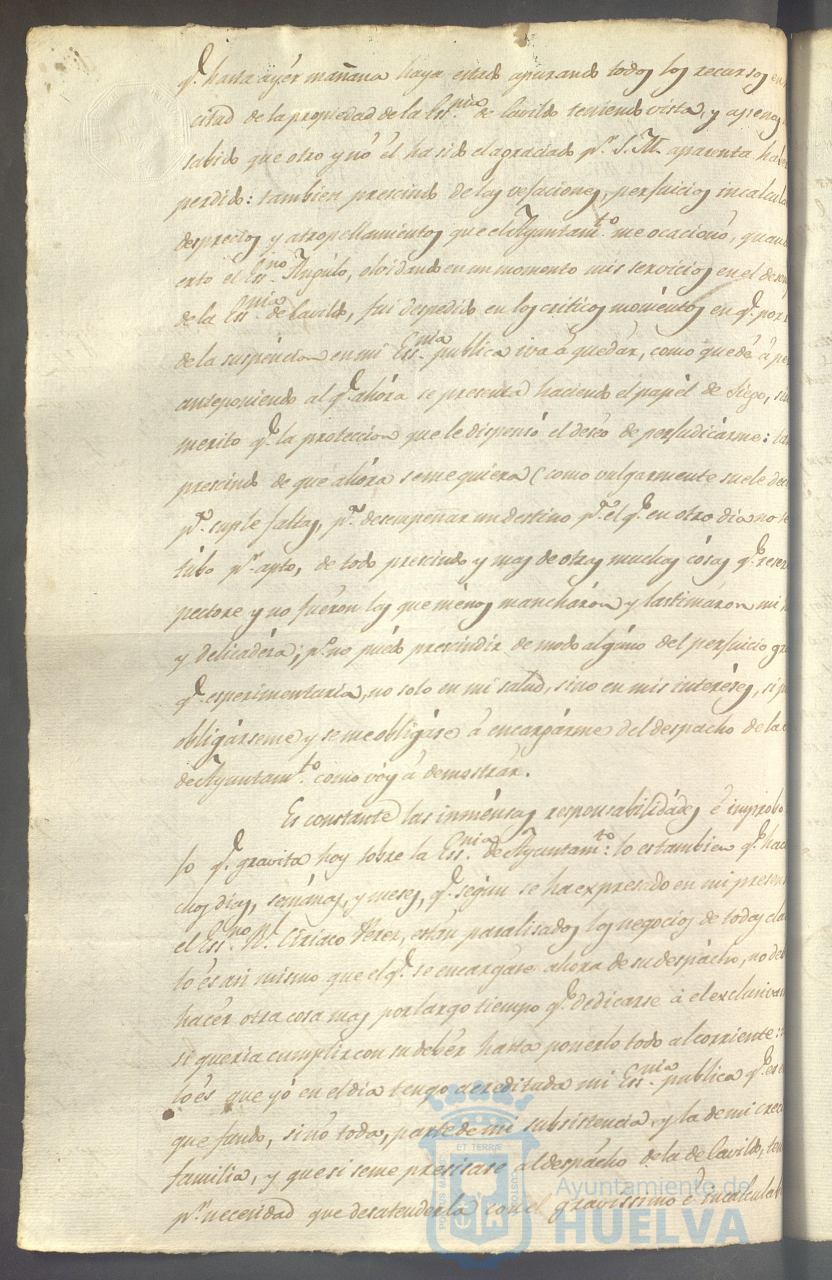 q.e hasta ayér mañana haya estado apurando todos los recursos en
citud de la propiedad de la Ess.nia de Cavildo teniendo vista, y apenas
sabido que otro y nó él ha sido el agraciado p.r S. M. aparenta hab
perdido: tambien prescindo de las vesaciones, perjuicios incalcula
desprecios y atropellamientos que el Ayuntam.to me ocacionó, quand
erto el Ess.no Angúlo, olvidando en un momento mis servicios en el desem
de la Ess.nia de Cavildo, fui despedido en los criticos moméntos en q.e por
de la suspéncion en mi Ess.nia publica iva á quedár, como quedé á pe
anteponiendo al q.e ahóra se presenta haciendo el papél de Siégo, sin
merito q.e la proteccion que le dispensó el deséo de perjudicárme: ta
prescindo de que ahóra se me quiera (como vulgarmente suele dec
p.a suple faltas, p.a desempeñar un destino p.a el q.e en otro dia no se
túbo p.r apto, de todo prescindo y mas de otras muchas cósas q.e reser
pectore y no fuéron las que ménos mancháron y lastimáron mi
y delicadéza; p.o no puédo prescindir de modo algúno del perjuicio gra
q.e esperimentaria, no solo en mi salud, sino en mis interéses, si p
obligárseme y se me obligáre á encargárme del despacho de la
de Ayuntam.to como vóy á demostrár.
Es constante las inménsas responsabilidádes é improbo
jo q.e gravita hoy sobre la Ess.nia de Ayuntam.to: lo es tambien q.e hac
chos dias, semánas, y meses, q.e según se ha expresado en mi presen
el Ess.no D.n Ciriaco Perez, están paralisados los negocios de todas cla
to és asi mismo que el q.e se encargáre ahora de su despácho, no deb
hacér otra cosa mas por largo tiempo q.e dedicarse á el exclusivam
se queria cumplir con su debér hasta ponerlo todo al corriente:
lo és que yó en el dia tengo acreditada mi Ess.nia publica q.e es
que fundo, si nó toda, parte de mi subsistencia, y la de mi crec
familia, y que si se me precisáse al despácho de la de Cavildo, ten
p.r necesidad que desatenderla con el gravissimo é incalculab
PORTUS MARIS ET TERRAE CUSTODIA
Ayuntamiento de
HUELVA